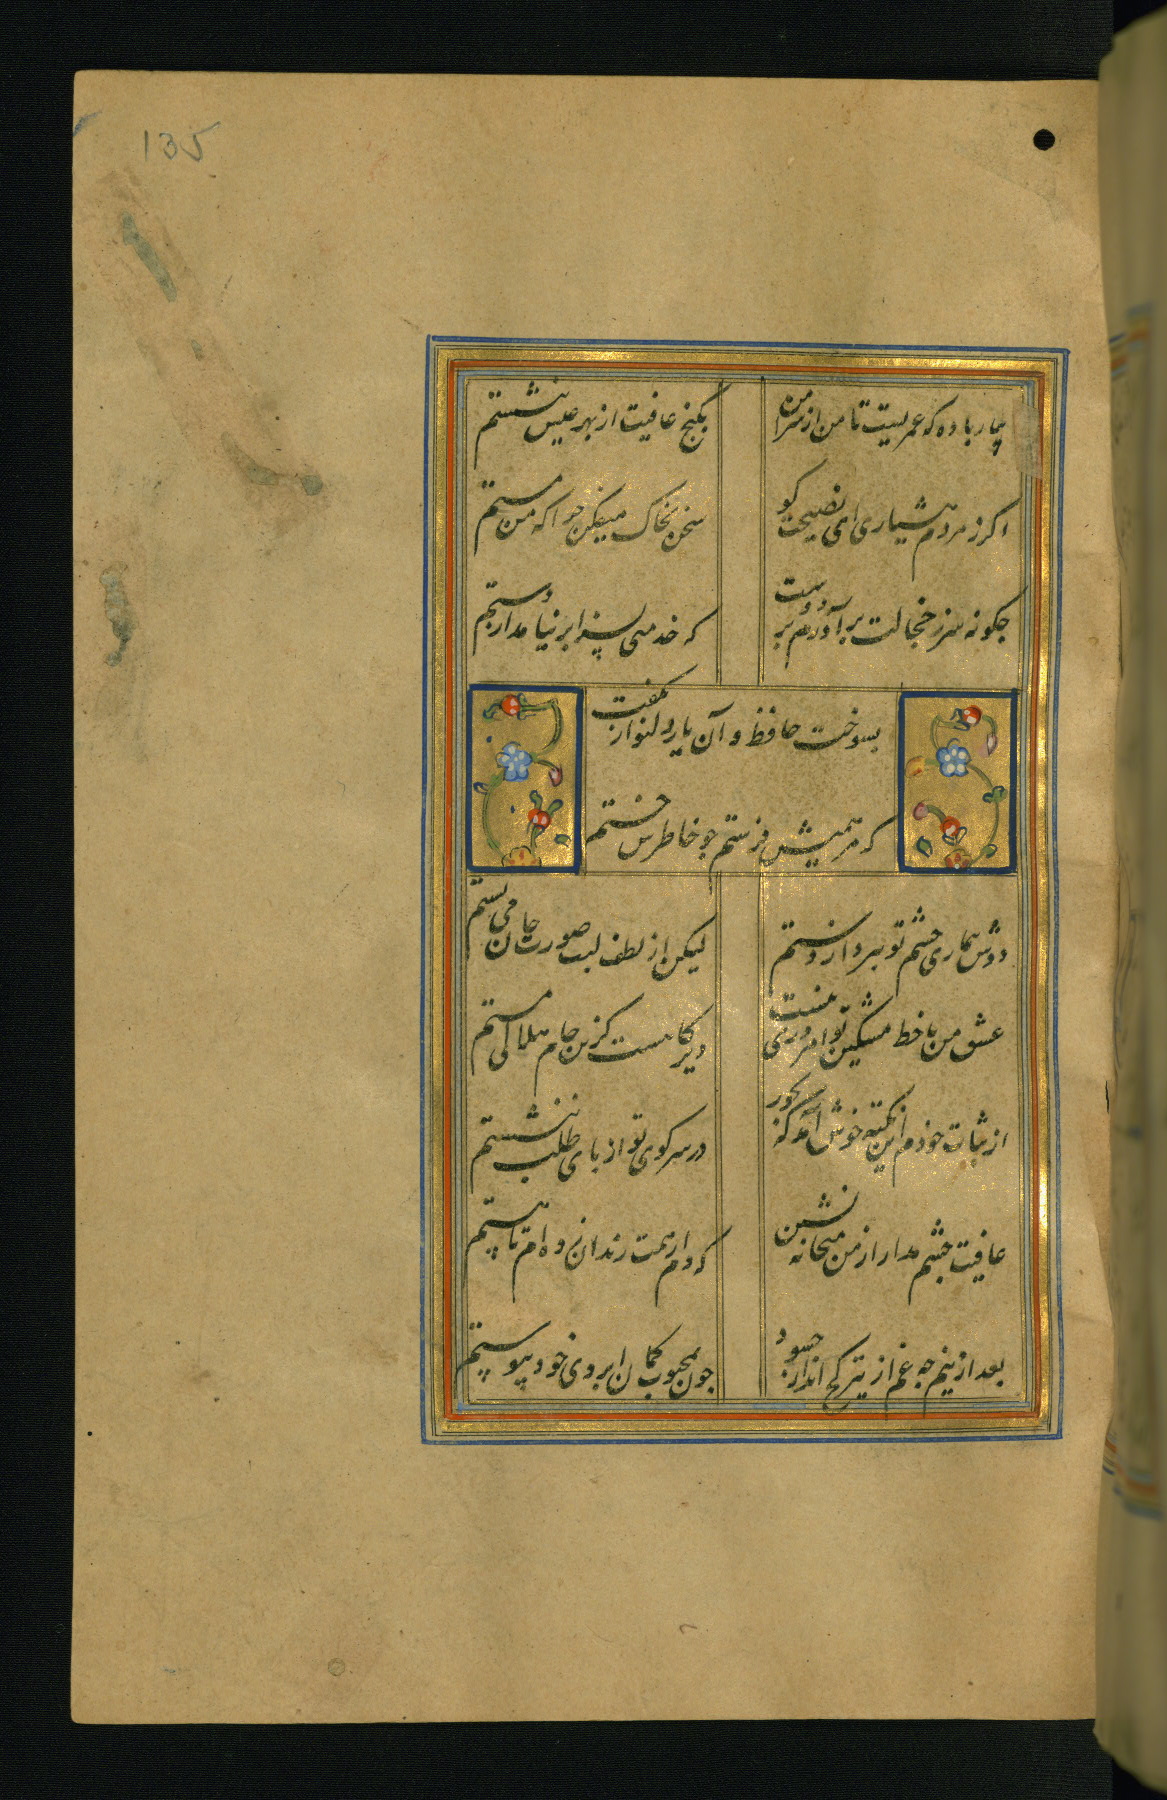 135
بیار باده که عمریست تا من از سر امن
بکنج عافیت از بهر عیش ننشستم
اکر ز مردم هشیاری ای نصیحت کو
سخن بخاک میفکن جرا که من مستم
جکونه سر ز خجالت برآورم بر دوست
که خدمتی بسزا برنیامد از دستم
بسوخت حافظ و آن یار دلنواز نکفت
که مرهمیش فرستم جو خاطرش خستم
دوش بیماری چشم تو ببرد از دستم
لیکن از لطف لبت صورت جان می بستم
عشق من با خط مشکین تو امروزی نیست
دیرکاهست کزین جام هلالی مستم
از ثبات خودم این نکته خوش آمد که بجور
در سر کوی تو از بای طلب ننشستم
عافیت چشم مدار از من میخانه نشین
که دم از همت رندان زده ام تا هستم
بعد ازینم چه غم از تیر کج انداز حسود
جون بمحبوب کمان ابروی خود پیوستم